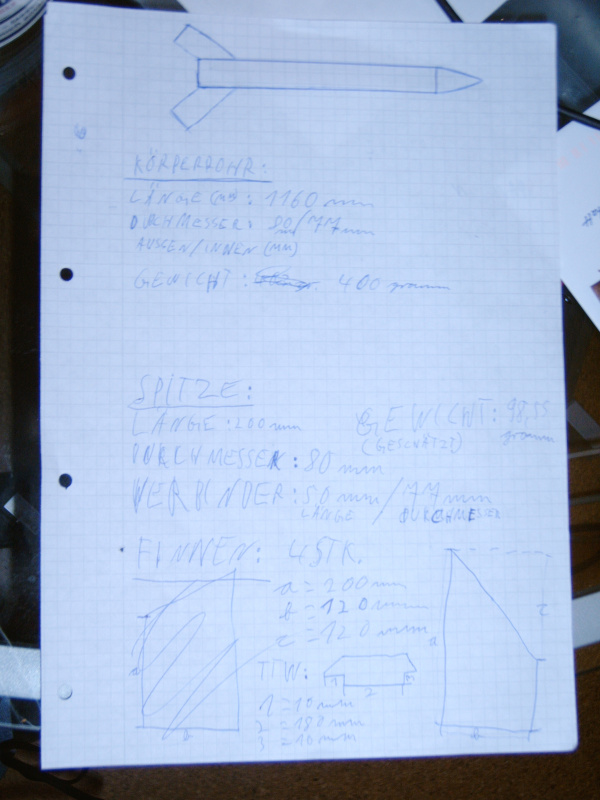 KÖRPERROHR:
LÄNGE (MM): 1160 mm
DURCHMESSER: 80/77 mm
AUSSEN/INNEN (MM)
GEWICHT: 400 gramm
SPITZE:
LÄNGE: 200 mm
GEWICHT: 98,55 gramm
(GESCHÄTZT)
DURCHMESSER: 80 mm
VERBINDER: 50 mm / 77 mm
LÄNGE DURCHMESSER
FINNEN: 4 STK.
a = 200 mm
b = 120 mm
c = 120 mm
a
c
b
TTW:
1
2
3
1 = 10 mm
2 = 180 mm
3 = 10 mm